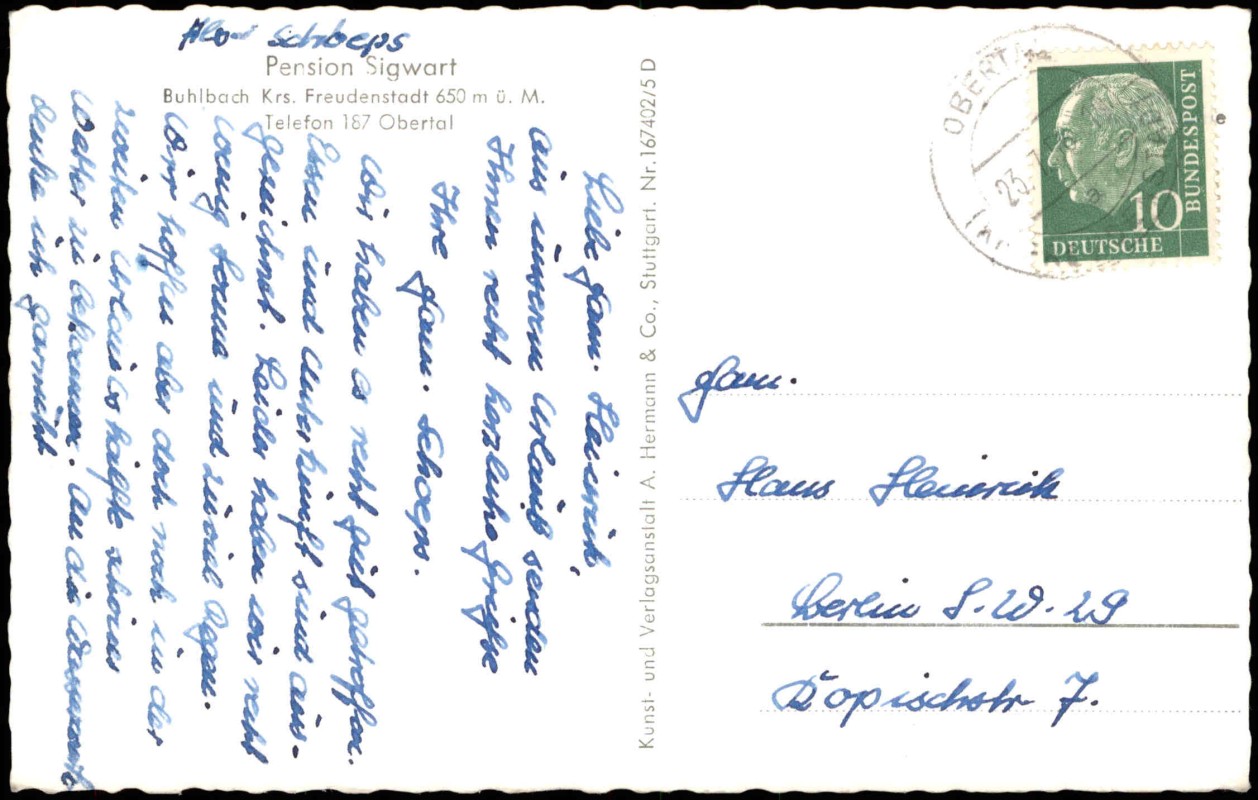 Schoeps
Pension Sigwart
Buhlbach Krs. Freudenstadt 650 m ü. M.
Telefon 187 Obertal
Liebe Fam. Heinrich,
aus unserem Urlaub senden
Ihnen recht herzliche Grüße
Ihre
Fam. Schoeps.
Wir haben es recht gut getroffen.
Essen und Unterkunft sind aus-
gezeichnet. Leider haben wir recht
wenig Sonne und zuviel Regen.
Wir hoffen aber doch noch in der
zweiten Urlaubshälfte schönes
Wetter zu bekommen. An die
denke ich gar nicht
Kunst- und Verlagsanstalt A. Hermann & Co., Stuttgart. Nr. 167402/5 D
OBERTAL
23.
a
10
DEUTSCHE
BUNDESPOST
Fam.
Hans Heinrich
Berlin S.W. 29
Kopischstr 7.